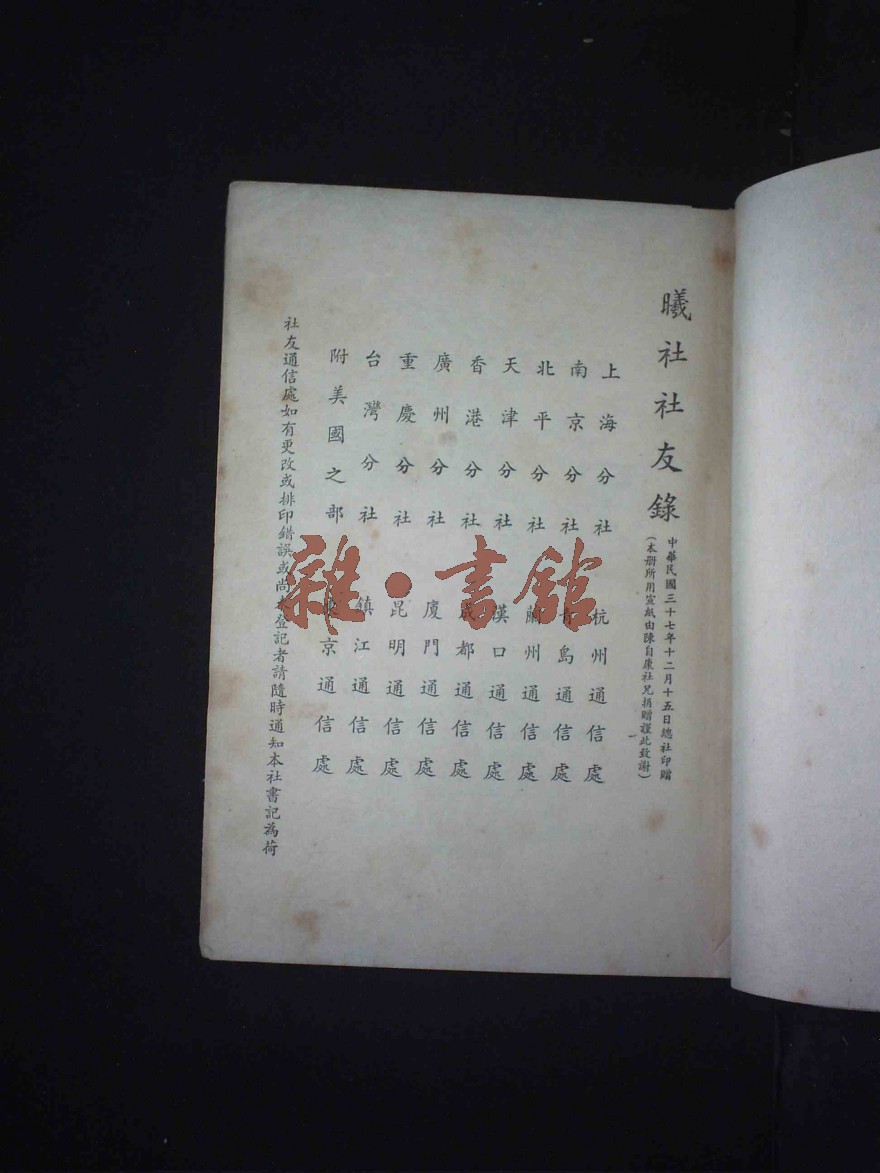 曦社社友錄
中華民國三十七年十二月十五日總社印贈
(本册所用宣紙由陳自康社兄捐贈謹此致謝)
上海分社
南京分社
北平分社
天津分社
香港分社
廣州分社
重慶分社
台灣分社
附美國之部
杭州通信處
青島通信處
蘭州通信處
漢口通信處
成都通信處
廈門通信處
昆明通信處
鎮江通信處
京通信處
社友通信處如有更改或排印錯誤或尚未登記者請隨時通知本社書記為荷
雜·書館